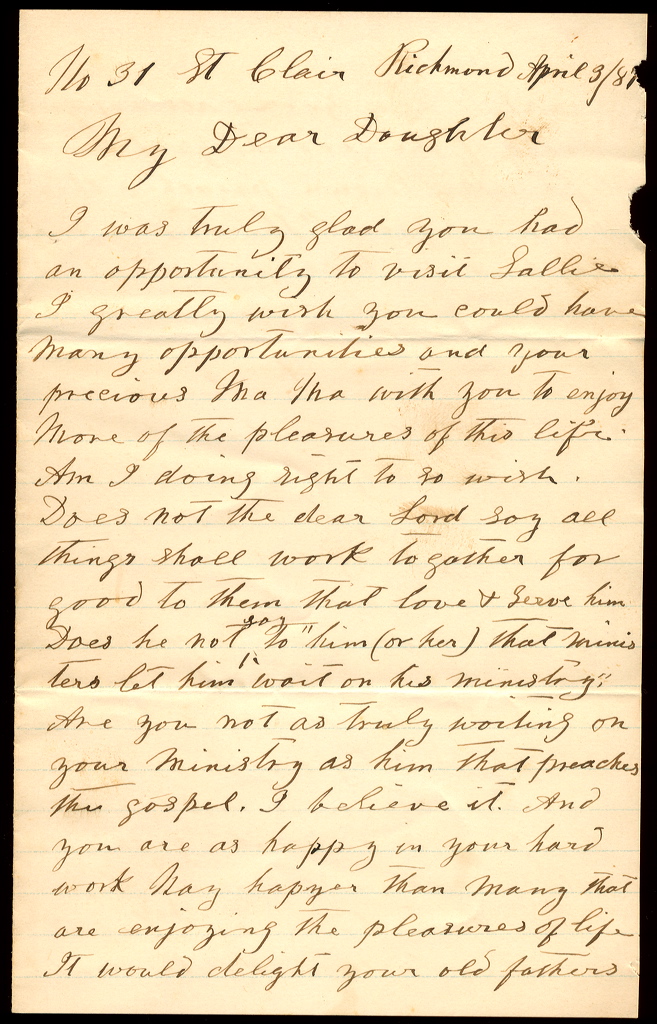 No 31 St Clair Richmond April 3/87
My Dear Daughter
I was truly glad you had
an opportunity to visit Sallie
I greatly wish you could have
many opportunities and your
precious Ma Ma with you to enjoy
More of the pleasures of this life.
Am I doing right to so wish.
Does not the dear Lord say all
things shall work togather for
good to them that love & serve him
Does he not say to "him (or her) that minis
ters let him wait on his ministry"
Are you not as truly waiting on
your Ministry as him that preaches
the gospel. I believe it. And
you are as happy in your hard
work Nay hapyer than many that
are enjoying the pleasures of life
It would delight your old fathers